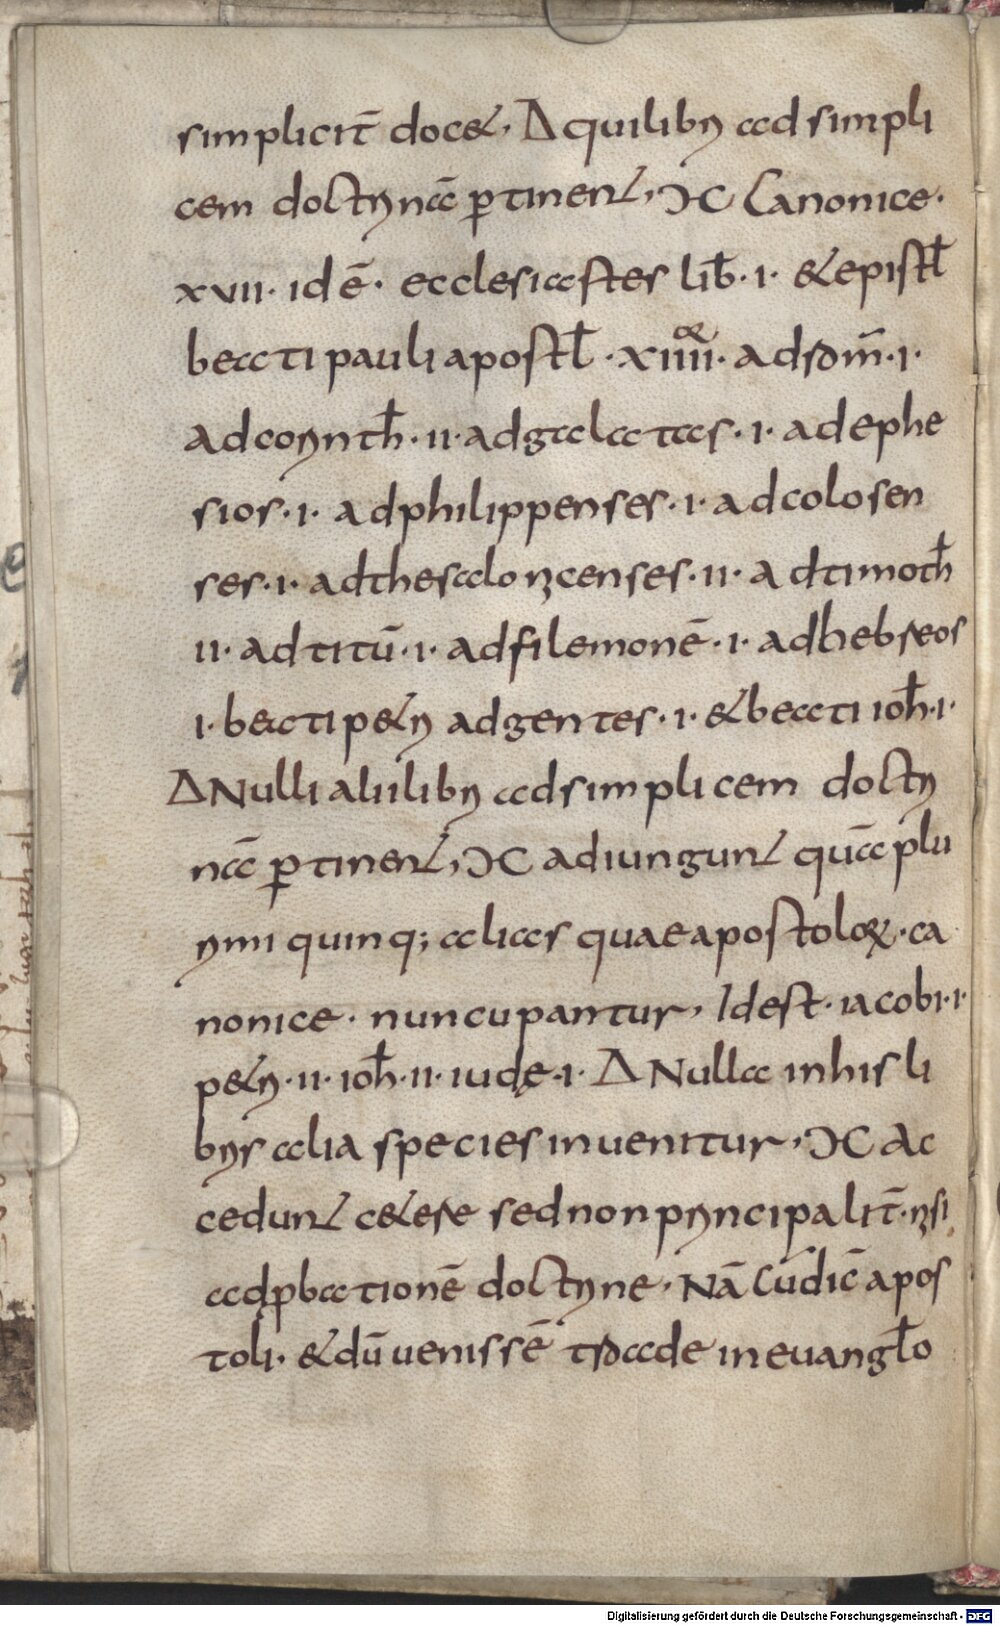 simplicit̄ docet, Δ quilibri ad simpli
cem doctrinā ꝑtinent, ϽC Canonice·
xvii· idē· ecclesiastes lib̄·i· & epistl̄
beati pauli apostl̄·xiiii· ad rom̄·i·
ad corinth̄·ii· ad galatas·i· ad ephe
sios·i· ad philippenses·i· ad colosen
ses·i· ad thesalonicenses·ii· ad timoth̄
ii· ad titū·i· ad filemonē·i· ad hebreos
i· beati petri ad gentes·i· & beati ioh̄·i·
Δ Nulli alii libri ad simplicem doctri
nā ꝑtinent, ϽC adiungunt quā plu
rimi quinq; alias quae apostoloꝝ·ca
nonice· nuncupantur, Idest· iacobi·i·
petri·ii· ioh̄·ii· iudę·i· Δ Nulla in his li
bris alia species inuenitur, ϽC Ac
cedunt cetere sed non principalit̄· nisi
ad ꝓbationē doctrine, Nā Cūdic̄ apos
toli· & dū uenissē troade in euangl̄o
Digitalisierung gefördert durch die Deutsche Forschungsgemeinschaft · DFG